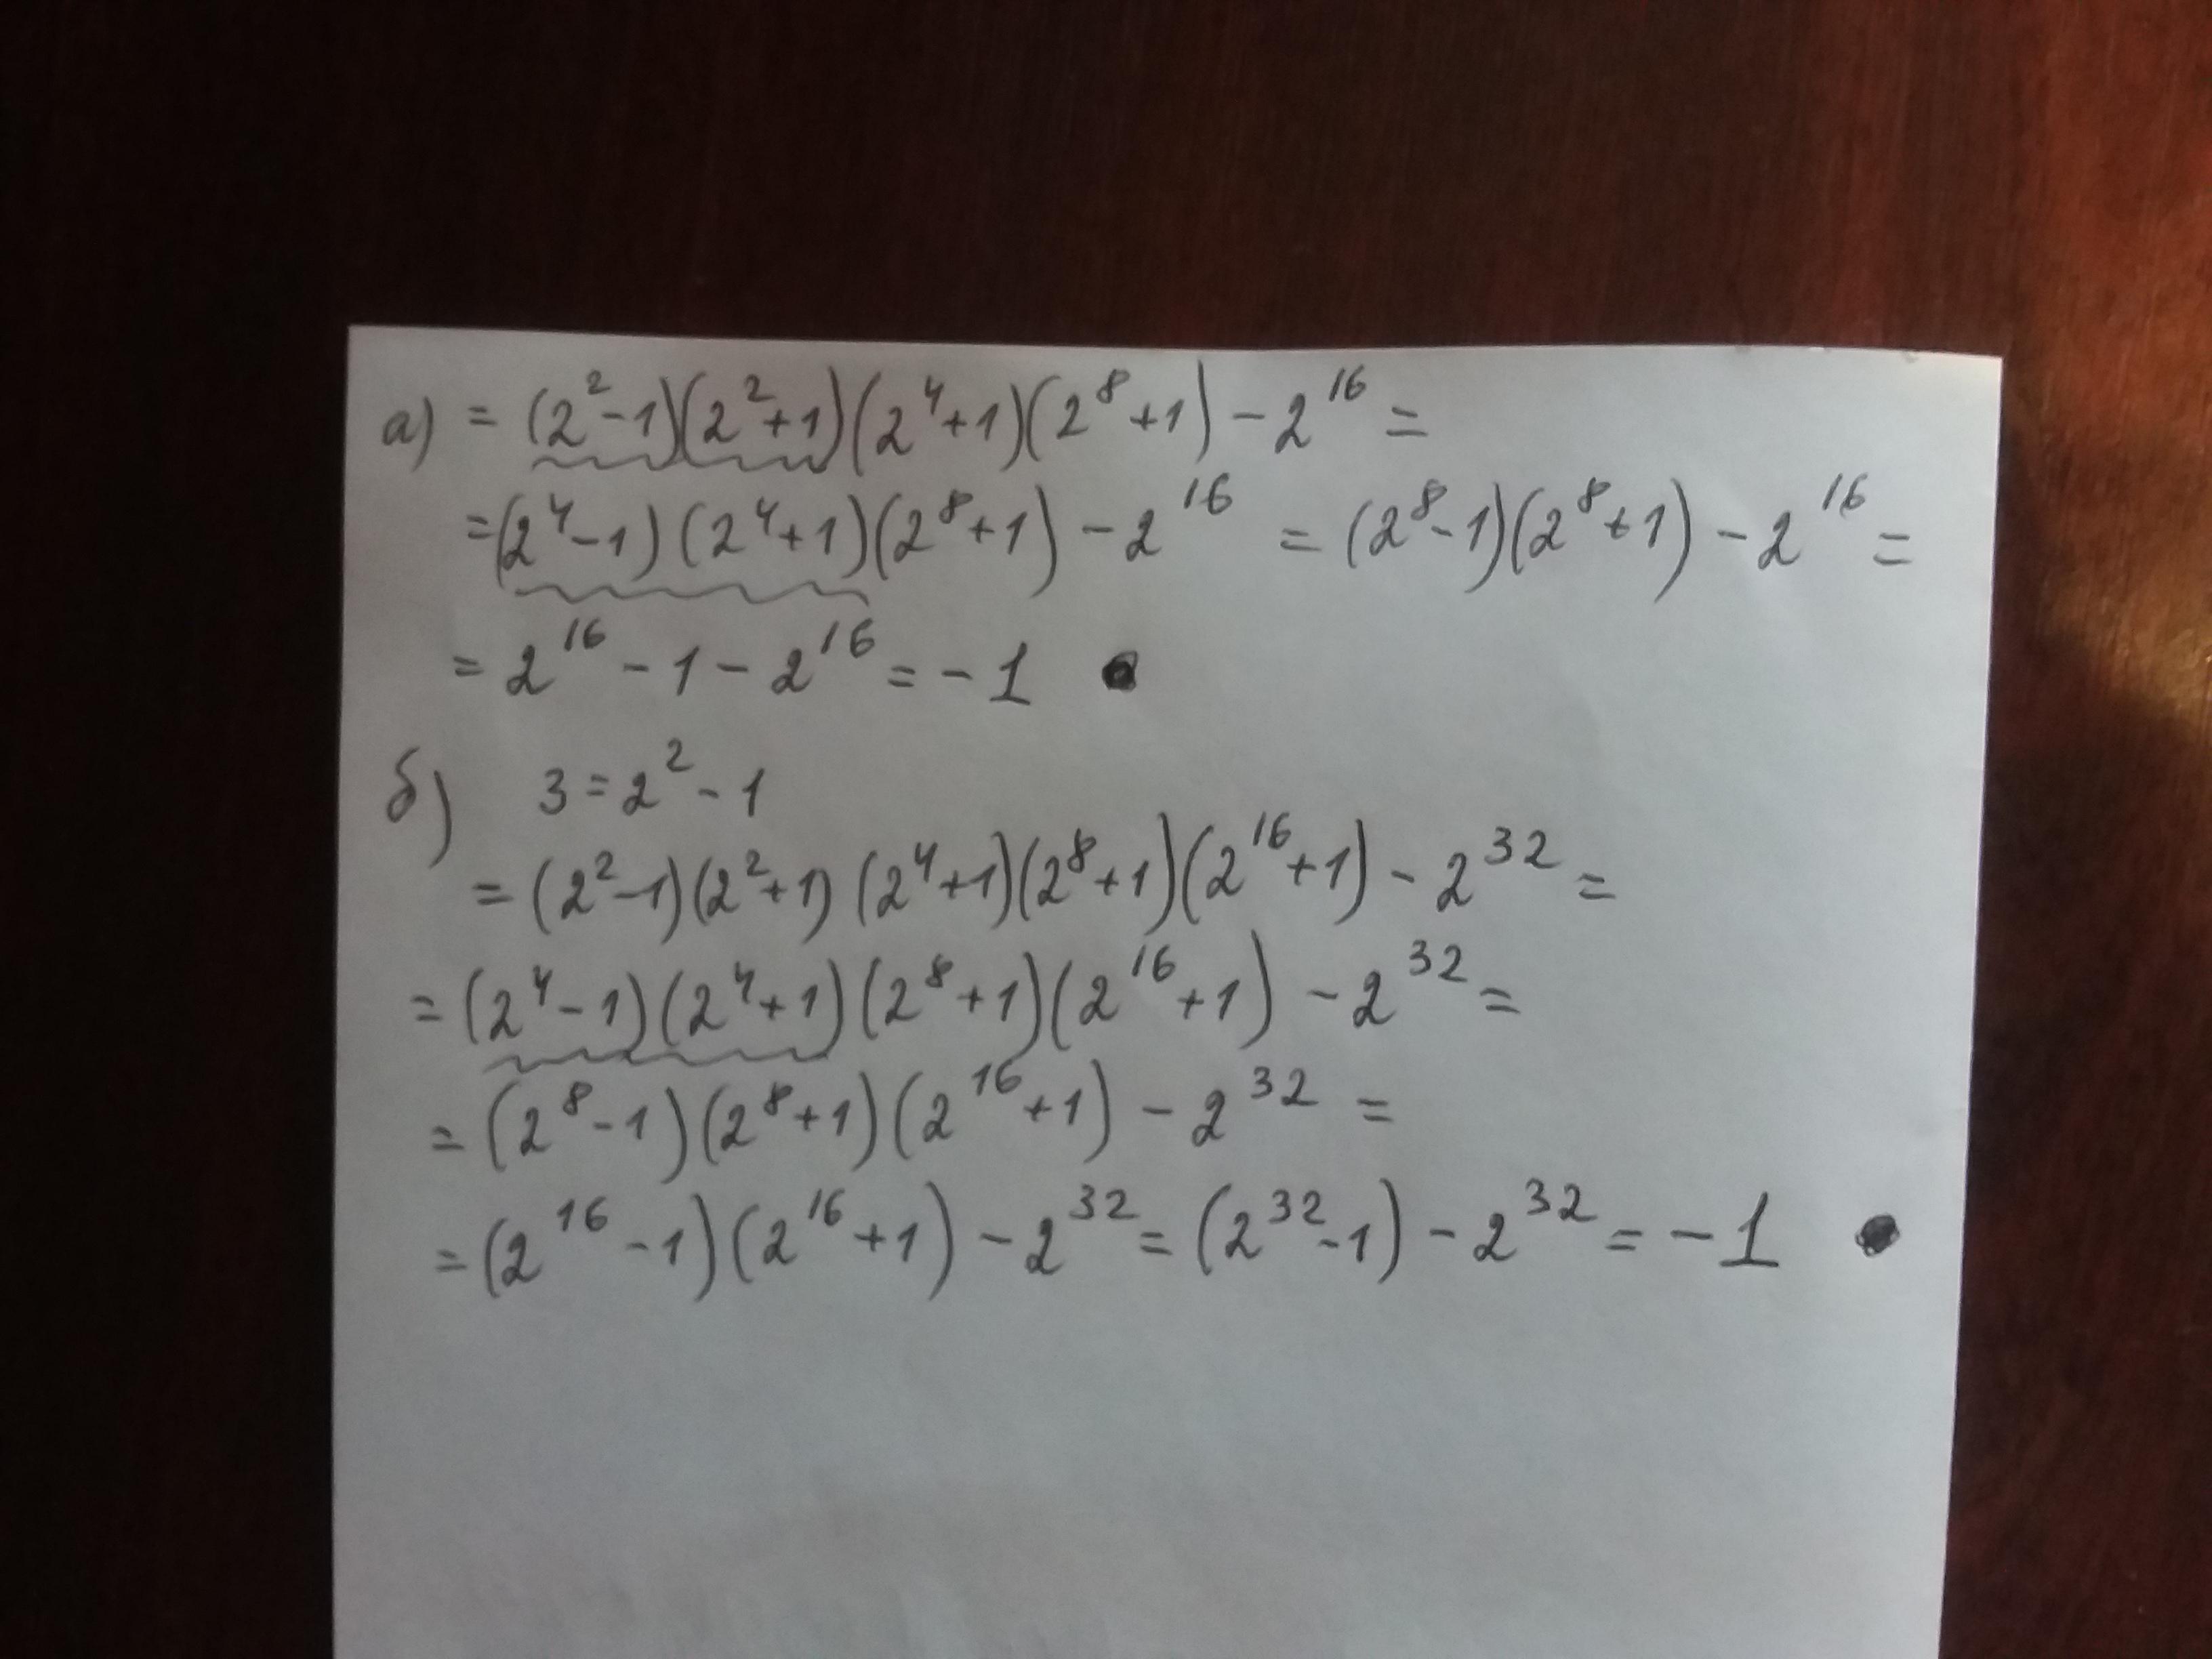 а) = (2²-1)(2²+1)(2⁴+1)(2⁸+1) - 2¹⁶ =
=(2⁴-1)(2⁴+1)(2⁸+1) - 2¹⁶ = (2⁸-1)(2⁸+1) - 2¹⁶ =
= 2¹⁶ - 1 - 2¹⁶ = - 1
б) 3 = 2² - 1
= (2²-1)(2²+1)(2⁴+1)(2⁸+1)(2¹⁶+1) - 2³² =
= (2⁴-1)(2⁴+1)(2⁸+1)(2¹⁶+1) - 2³² =
= (2⁸-1)(2⁸+1)(2¹⁶+1) - 2³² =
= (2¹⁶-1)(2¹⁶+1) - 2³² = (2³²-1) - 2³² = - 1